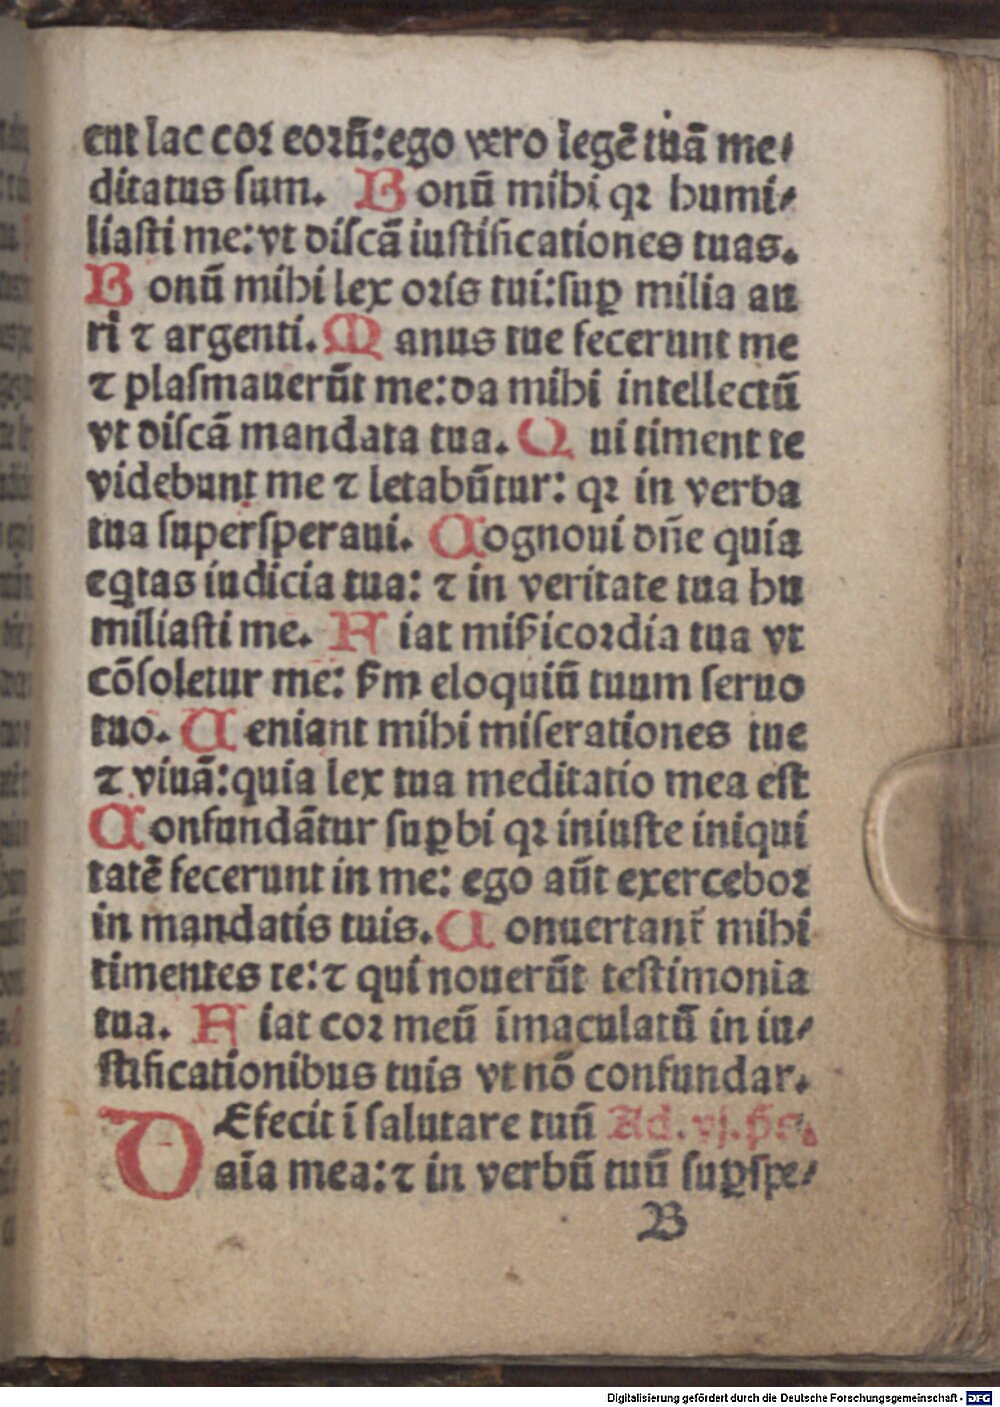 ent lac coꝛ eoꝛū: ego vero legē tuā me⸗
ditatus sum. Bonū mihi qꝛ humi⸗
liasti me: vt discā iustificationes tuas.
Bonū mihi lex oꝛis tui: suꝑ milia au
ri ⁊ argenti. Manus tue fecerunt me
⁊ plasmauerūt me: da mihi intellectū
vt discā mandata tua. Qui timent te
videbunt me ⁊ letabūtur: qꝛ in verba
tua supersperaui. Cognoui dn̄e quia
eq̇tas iudicia tua: ⁊ in veritate tua hu
miliasti me. Fiat mis̄icoꝛdia tua vt
cōsoletur me: s̄m eloquiū tuum seruo
tuo. Ueniant mihi miserationes tue
⁊ viuā: quia lex tua meditatio mea est
Confundātur suꝑbi qꝛ iniuste iniqui
tatē fecerunt in me: ego aūt exerceboꝛ
in mandatis tuis. Conuertant᷑ mihi
timentes te: ⁊ qui nouerūt testimonia
tua. Fiat coꝛ meū īmaculatū in iu⸗
stificationibus tuis vt nō confundar.
DEfecit ī salutare tuū Ad. vj. ps.
aīa mea: ⁊ in verbū tuū suꝑspe⸗
B
Digitalisierung gefördert durch die Deutsche Forschungsgemeinschaft - DFG